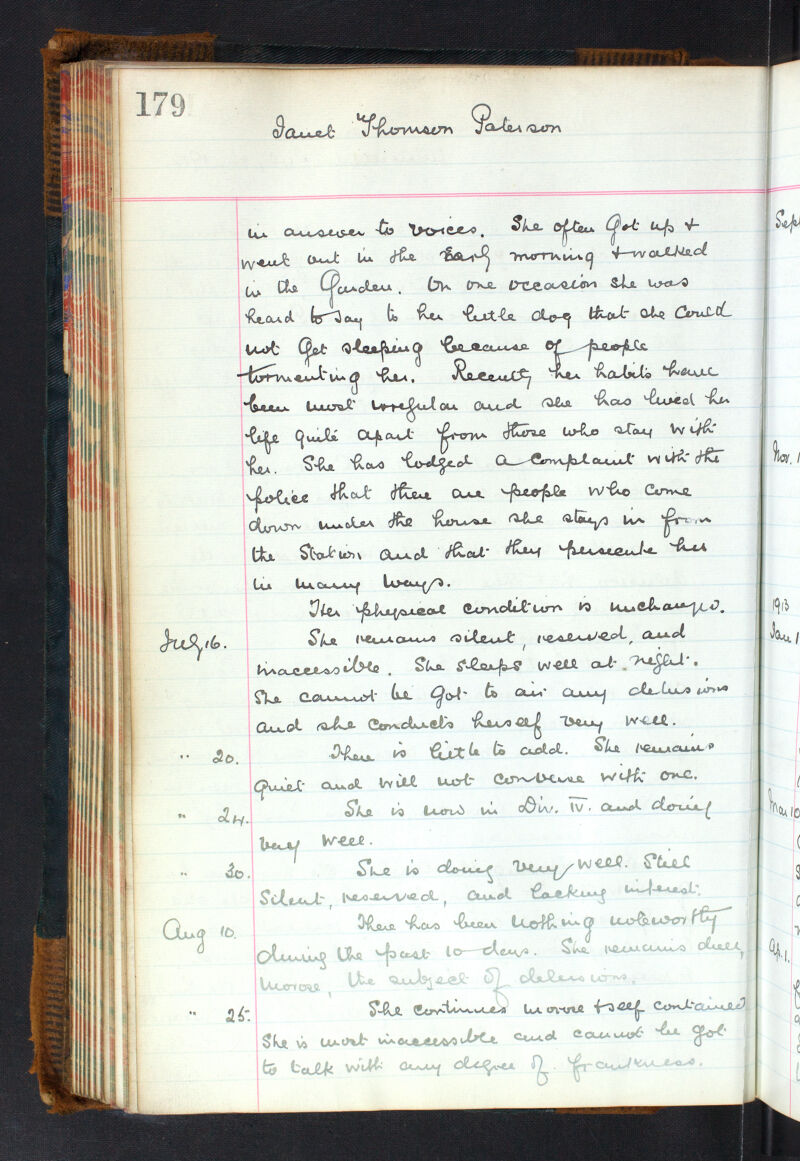 179
Janet Thomson Paterson
in answer to voices. She often Got up +
went out in the Early morning + walked
in the Garden. On one occasion she was
heard to say to her little dog that she Could
not Get sleeping because of people
tormenting her. Recently her habits have
been most irregular and she has lived her
life quite apart from those who stay with
her. She has lodged a Complaint with the
police that there are people who come
down under the house she stays in from
the Station and that they persecute her
in many ways.
Her physical condition is unchanged.
July 16. She remains silent, reserved, and
inaccessible. She sleeps well at night.
She cannot be Got to air any delusions
and she conducts herself very well.
" 20. There is little to add. She remains
quiet and will not converse with one.
" 24. She is now in Div. IV. and doing
very well.
" 30. She is doing very well. Still
Silent, reserved, and lacking interest.
Aug 10. There has been nothing noteworthy
during the past 10 days. She remains dull,
morose, the subject of delusions.
" 25. She continues morose + self contained
She is most inaccessible and cannot be got
to talk with any degree of frankness.
Sept
Nov. 1
1913
Jan 1
Mar 10
Ap. 1.